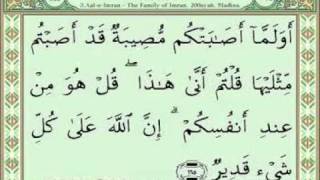 3.Aal-e-Imran - The Family of Imran 200ayah. Madina
أَوَلَمَّآ أَصَـٰبَتْكُم مُّصِيبَةٌ قَدْ أَصَبْتُم
مِّثْلَيْهَا قُلْتُمْ أَنَّىٰ هَـٰذَا ۖ قُلْ هُوَ مِنْ
عِندِ أَنفُسِكُمْ ۗ إِنَّ ٱللَّهَ عَلَىٰ كُلِّ
شَىْءٍ قَدِيرٌ ١٦٥